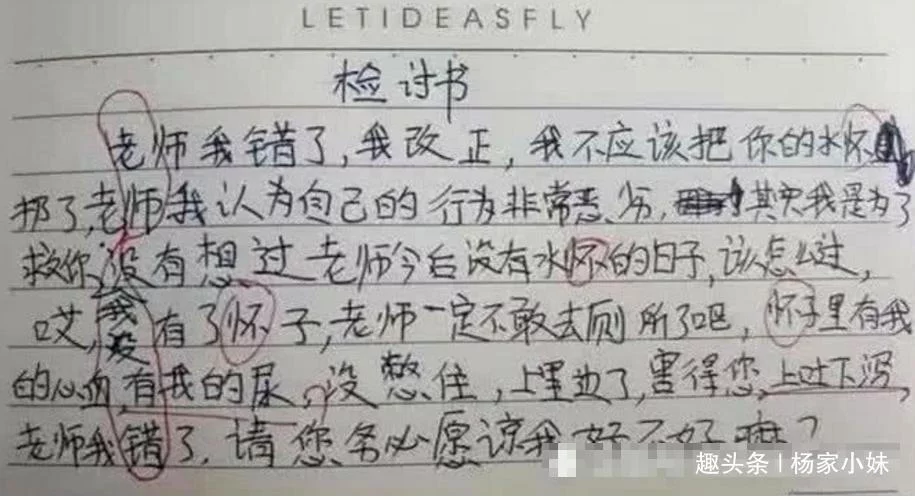 LETIDEASFLY
检讨书
老师我错了,我改正,我不应该把你的水怀
扔了,老师我认为自己的行为非常恶劣,其实我是为了
救你,没有想过老师今后没有水怀的日子,该怎么过,
哎,我没有了怀子,老师一定不敢去厕所了吧,怀子里有我
的心血,有我的尿,没憋住,上里边了,害得您上吐下泻,
老师我错了,请您务必愿谅我好不好嘛?
趣头条 | 杨家小妹